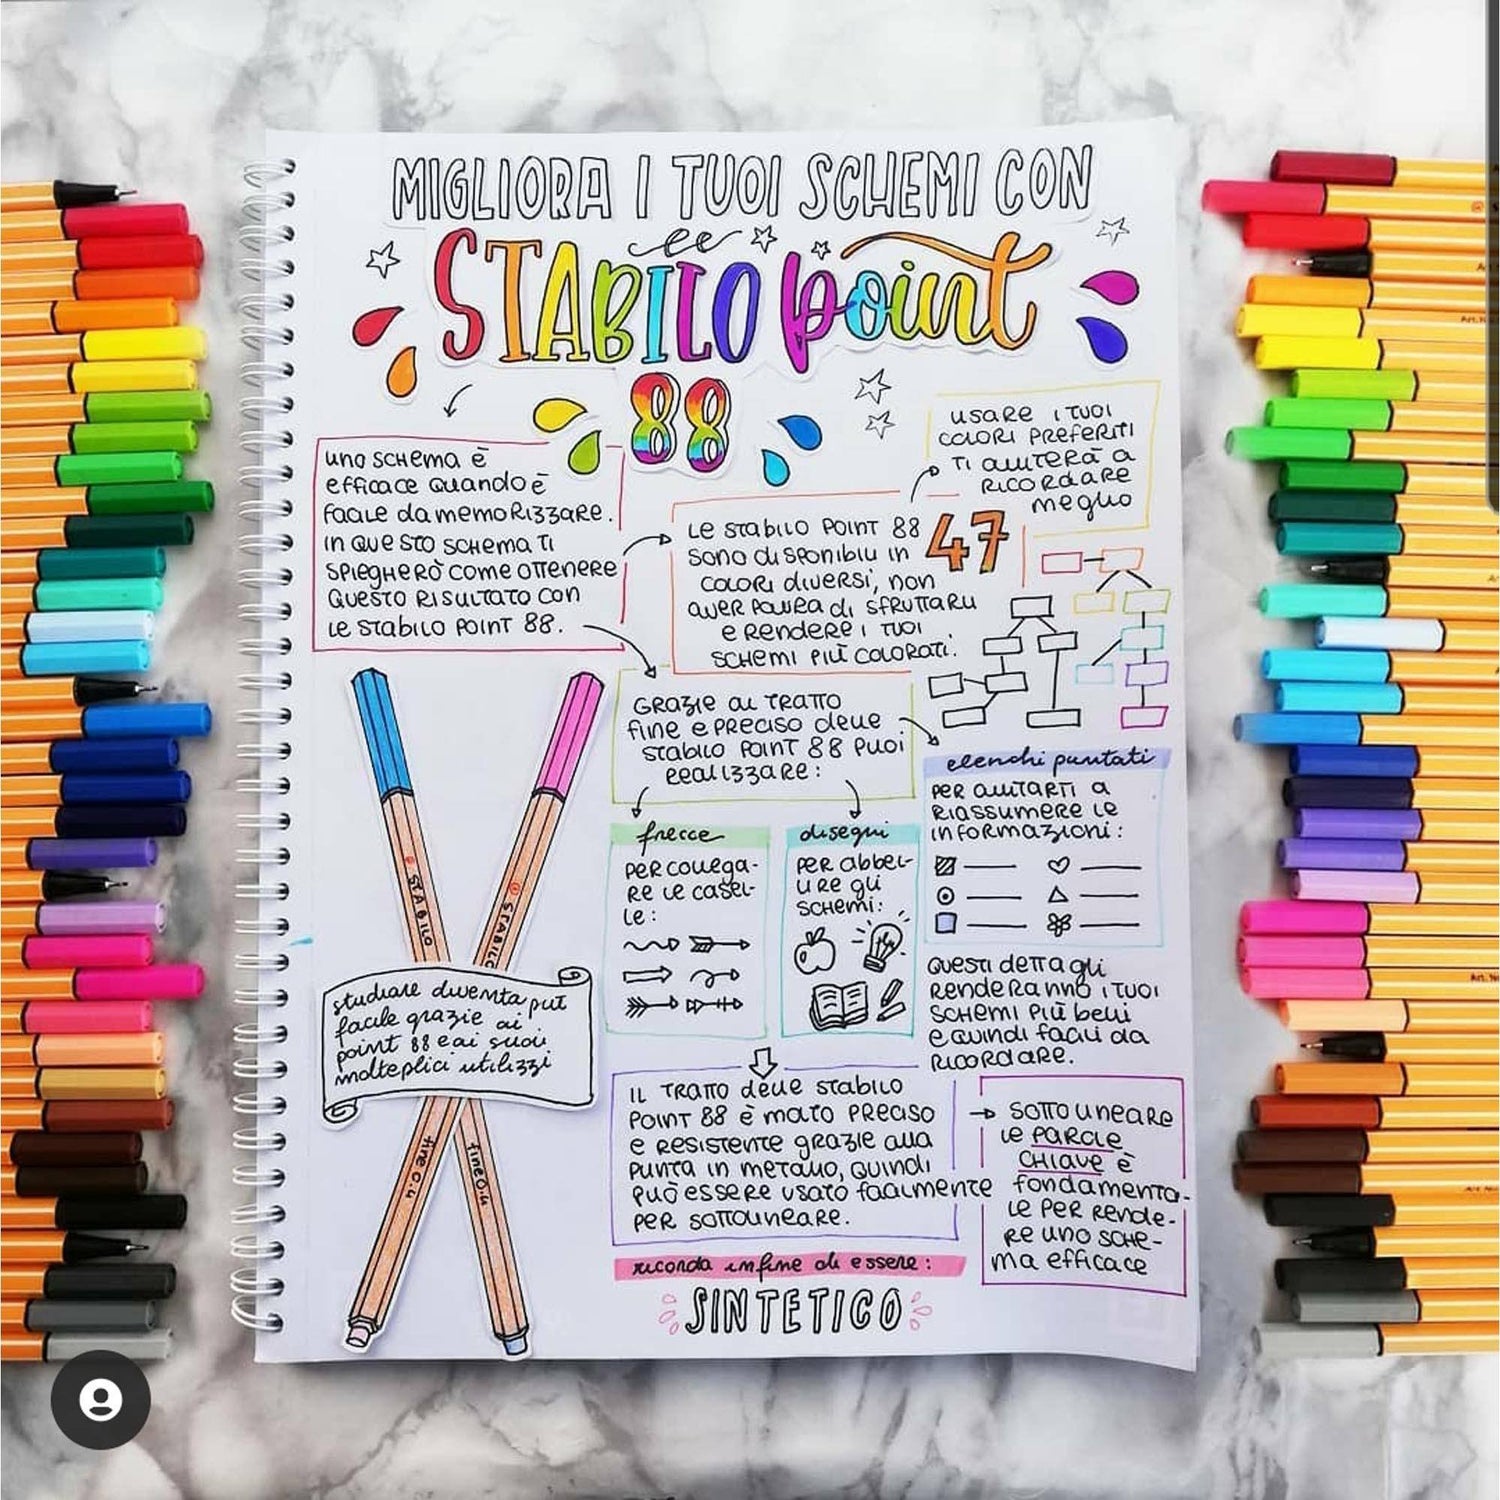 MIGLIORA I TUOI SCHEMI CON
STABILO point
88
UNO SCHEMA È
EFFICACE QUANDO È
FACILE DA MEMORIZZARE.
IN QUESTO SCHEMA TI
SPIEGHERÒ COME OTTENERE
QUESTO RISULTATO CON
LE STABILO POINT 88.
USARE I TUOI
COLORI PREFERITI
TI AIUTERÀ A
RICORDARE
MEGLIO
LE STABILO POINT 88
SONO DISPONIBILI IN 47
COLORI DIVERSI, NON
AVER PAURA DI SFRUTTARLI
E RENDERE I TUOI
SCHEMI PIÙ COLORATI.
GRAZIE AL TRATTO
FINE E PRECISO DELLE
STABILO POINT 88 PUOI
REALIZZARE:
frecce
PER COLLEGA-
RE LE CASEL-
LE:
disegni
PER ABBEL-
LIRE GLI
SCHEMI:
elenchi puntati
PER AIUTARTI A
RIASSUMERE LE
INFORMAZIONI:
QUESTI DETTAGLI
RENDERANNO I TUOI
SCHEMI PIÙ BELLI
E QUINDI FACILI DA
RICORDARE.
STABILO
STABILO
studiare diventa più
facile grazie ai
point 88 e ai suoi
molteplici utilizzi
fine 0.4
fine 0.4
IL TRATTO DELLE STABILO
POINT 88 È MOLTO PRECISO
E RESISTENTE GRAZIE ALLA
PUNTA IN METALLO, QUINDI
PUÒ ESSERE USATO FACILMENTE
PER SOTTOLINEARE.
SOTTOLINEARE
LE PAROLE
CHIAVE È
FONDAMENTA-
LE PER RENDE-
RE UNO SCHE-
MA EFFICACE
ricorda infine di essere:
SINTETICO